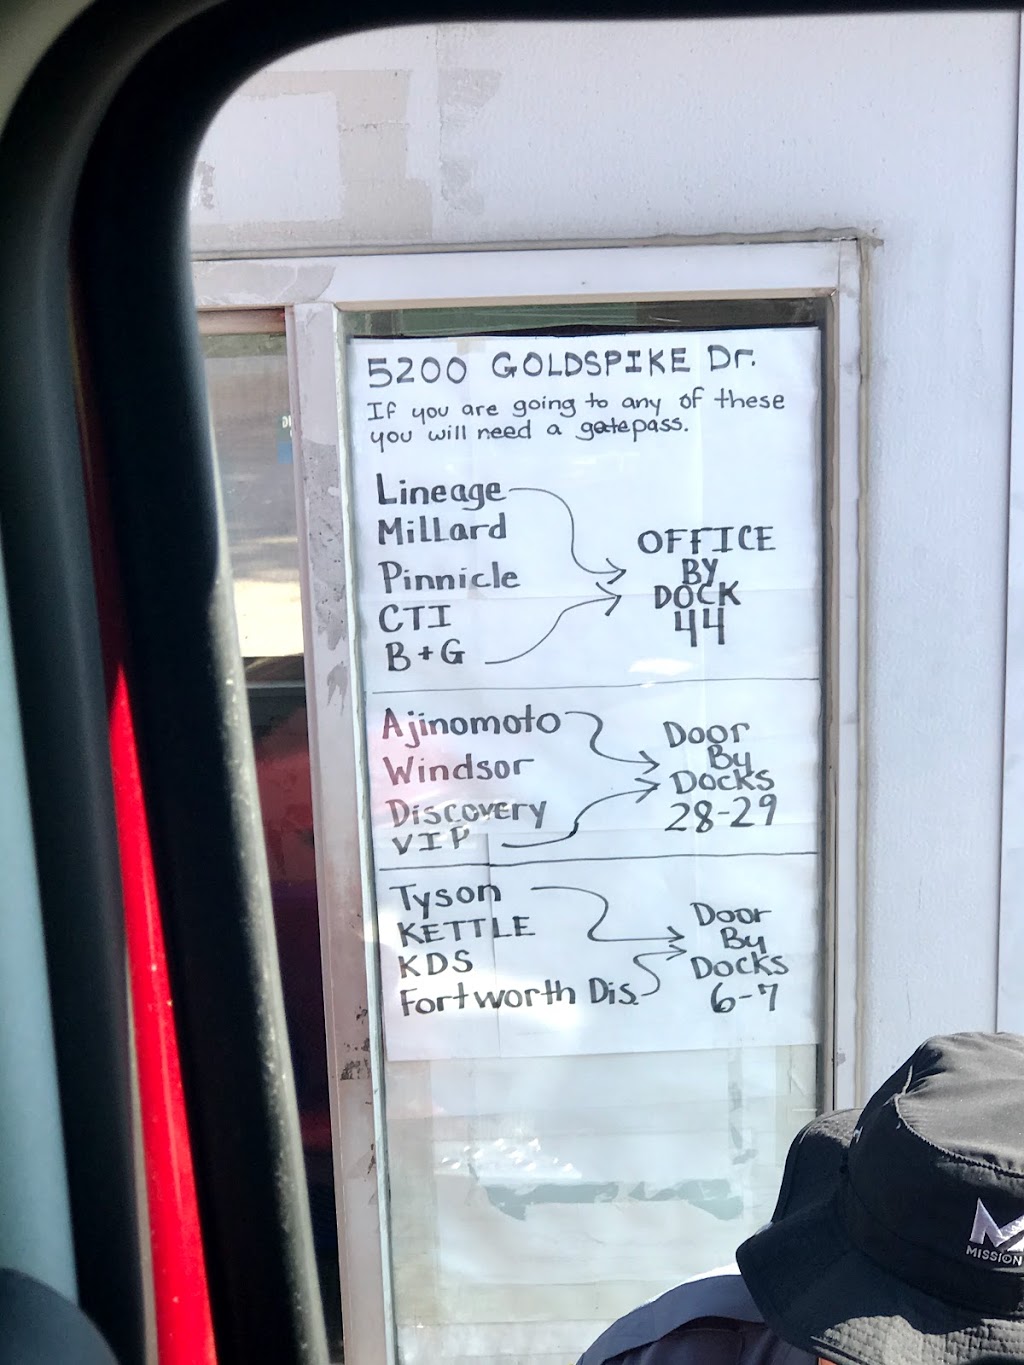 5200 GOLDSPIKE Dr.
If you are going to any of these
you will need a gatepass.
Lineage
Millard
Pinnicle
CTI
B+G
OFFICE
BY
DOCK
44
Ajinomoto
Windsor
Discovery
VIP
Door
By
Docks
28-29
Tyson
KETTLE
KDS
Fortworth Dis.
Door
By
Docks
6-7
MISSION